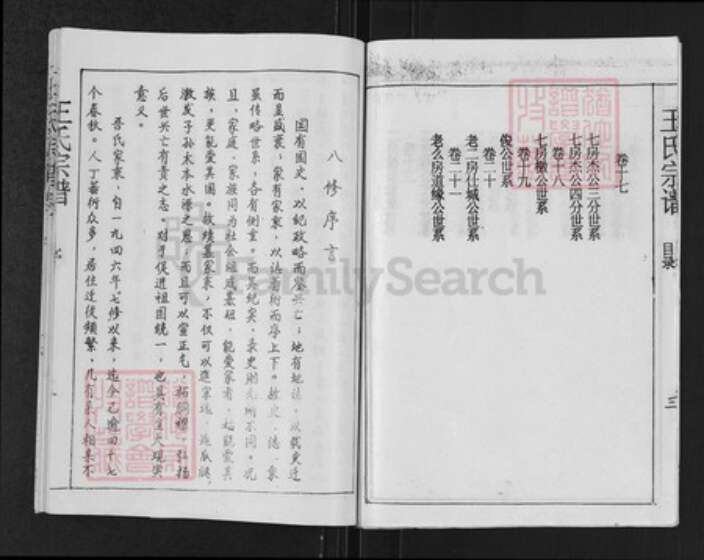 王氏宗谱
目录
三
卷十七
七房杰公二分世系
七房杰公四分世系
卷十八
七房檄公世系
卷十九
俊公世系
卷二十
老二房仕城公世系
卷二十一
老么房道缘公世系
八修序言
国有国史，以纪政略而鉴兴亡；地有地志，以载变迁
而显盛衰；家有家乘，以认著衍而序上下。故史、志、乘
虽传略世系，各有侧重。而其纪实、录史则无所不同。况
且，家庭、家族同为社会组成基础，能爱家者，始能爱其
族，更能爱其国。故续墓家乘，不仅可以追宗远、连瓜瓞，
激发子孙木本水源之恩，而且可以宣正气，拓纲理，弘扬
后世兴亡有责之志。对于促进祖国统一，也具有重大现实
意义。
吾氏家乘，自一九四六年七修以来，迄今已逾四十七
个春秋。人丁蕃衍众多，居住迁徙频繁，凡有吾人相聚不
王氏宗谱
FamilySearch